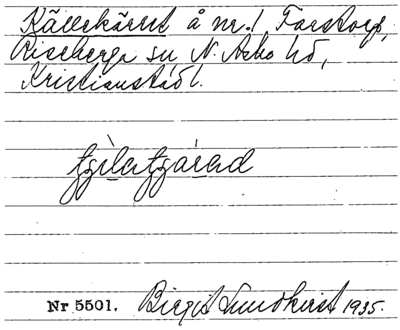 Källekärret å nr. 1, Farstorp,
Riseberga sn N. Åsbo hd,
Kristianst. l.
Nr 5501. Birgit Lundkvist 1935.